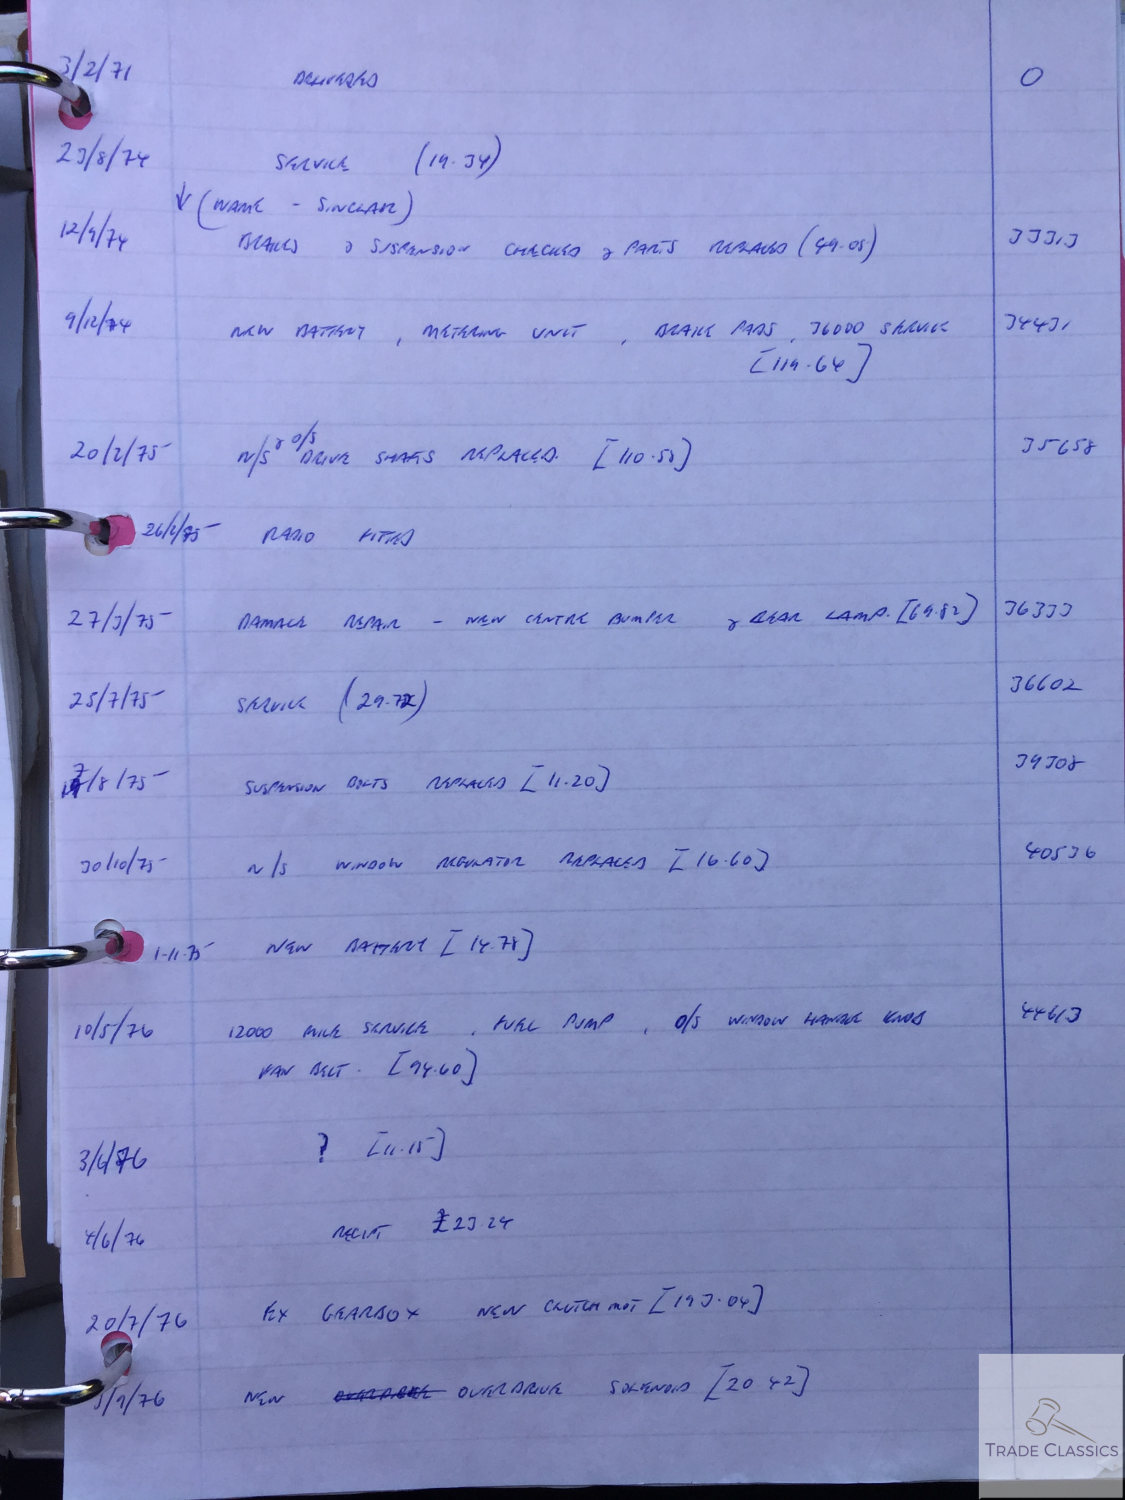 3/2/71 DELIVERED 0
23/8/74 SERVICE (19.34)
↓ (NAME - SINCLAIR)
12/9/74 BRAKES & SUSPENSION CHECKED & PARTS REPLACED (49.05) 33313
9/12/74 NEW BATTERY, METERING UNIT, BRAKE PADS, 36000 SERVICE 34431
[119.64]
20/2/75 N/S & O/S DRIVE SHAFTS REPLACED. [110.55] 35658
26/2/75 RADIO FITTED
27/3/75 DAMAGE REPAIR - NEW CENTRE BUMPER & REAR LAMP. [69.82] 36333
25/7/75 SERVICE (29.72) 36602
7/8/75 SUSPENSION BOLTS REPLACED [11.20] 39308
30/10/75 N/S WINDOW REGULATOR REPLACED [16.60] 40536
1-11-75 NEW BATTERY [14.78]
10/5/76 12000 MILE SERVICE, FUEL PUMP, O/S WINDOW HANDLE KNOB 44613
FAN BELT. [94.60]
3/6/76 ? [11.15]
4/6/76 RECIPT £23.24
20/7/76 EX GEARBOX NEW CLUTCH MOT [193.04]
3/9/76 NEW OVERDRIVE SOLENOID [20 42]
TRADE CLASSICS